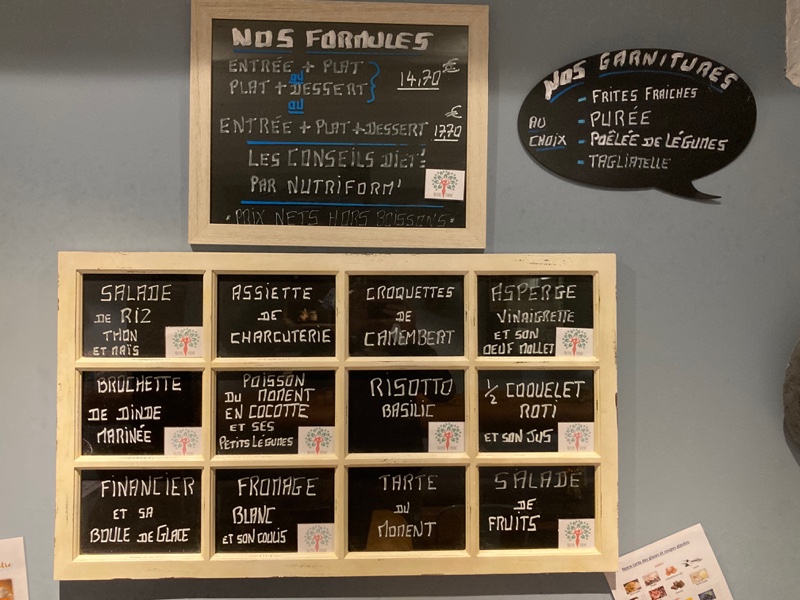 NOS FORMULES
ENTRÉE + PLAT
OU
PLAT + DESSERT
14,70 €
OU
ENTRÉE + PLAT + DESSERT 17,70 €
LES CONSEILS DIET'
PAR NUTRIFORM'
* PRIX NETS HORS BOISSONS *
NOS GARNITURES
AU CHOIX
- FRITES FRAICHES
- PURÉE
- POÊLÉE DE LÉGUMES
- TAGLIATELLE
SALADE
DE RIZ
THON
ET MAÏS
ASSIETTE
DE
CHARCUTERIE
CROQUETTES
DE
CAMEMBERT
ASPERGE
VINAIGRETTE
ET SON
OEUF MOLLET
BROCHETTE
DE DINDE
MARINÉE
POISSON
DU MOMENT
EN COCOTTE
ET SES
PETITS LÉGUMES
RISOTTO
BASILIC
½ COQUELET
ROTI
ET SON JUS
FINANCIER
ET SA
BOULE DE GLACE
FROMAGE
BLANC
ET SON COULIS
TARTE
DU
MOMENT
SALADE
DE
FRUITS